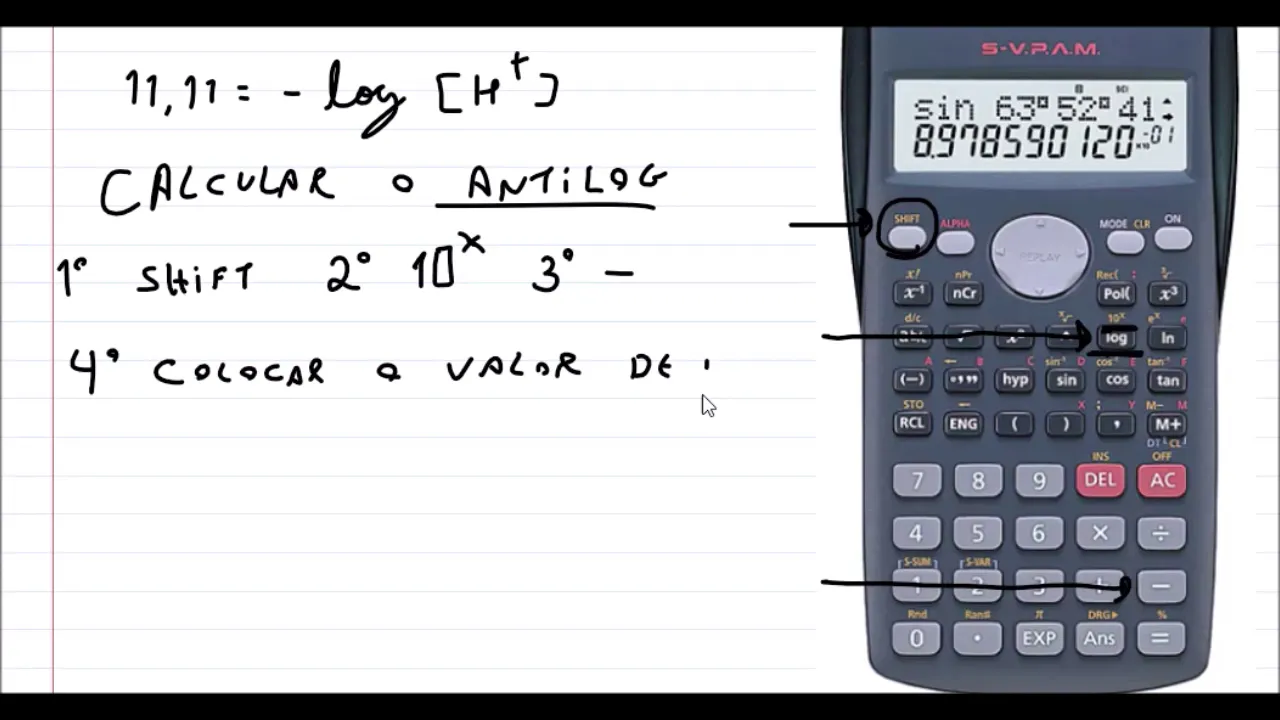 11,11 = - log [H⁺]
CALCULAR O ANTILOG
1° SHIFT 2° 10ˣ 3° -
4° COLOCAR O VALOR DE
S-V.P.A.M.
sin 63°52°41
8.978590120 ×10 -01
SHIFT ALPHA MODE CLR ON
REPLAY
x! nPr Rec( : ³√
x⁻¹ nCr Pol( x³
d/c ˣ√ 10ˣ eˣ e
log ln
A B C sin⁻¹ D cos⁻¹ E tan⁻¹ F
(−) °,,, hyp sin cos tan
STO ← X ; Y M− M
RCL ENG ( ) , M+
DT CL
INS OFF
7 8 9 DEL AC
4 5 6 × ÷
S-SUM S-VAR
1 2 3 + −
Rnd Ran# π DRG▶ %
0 · EXP Ans =